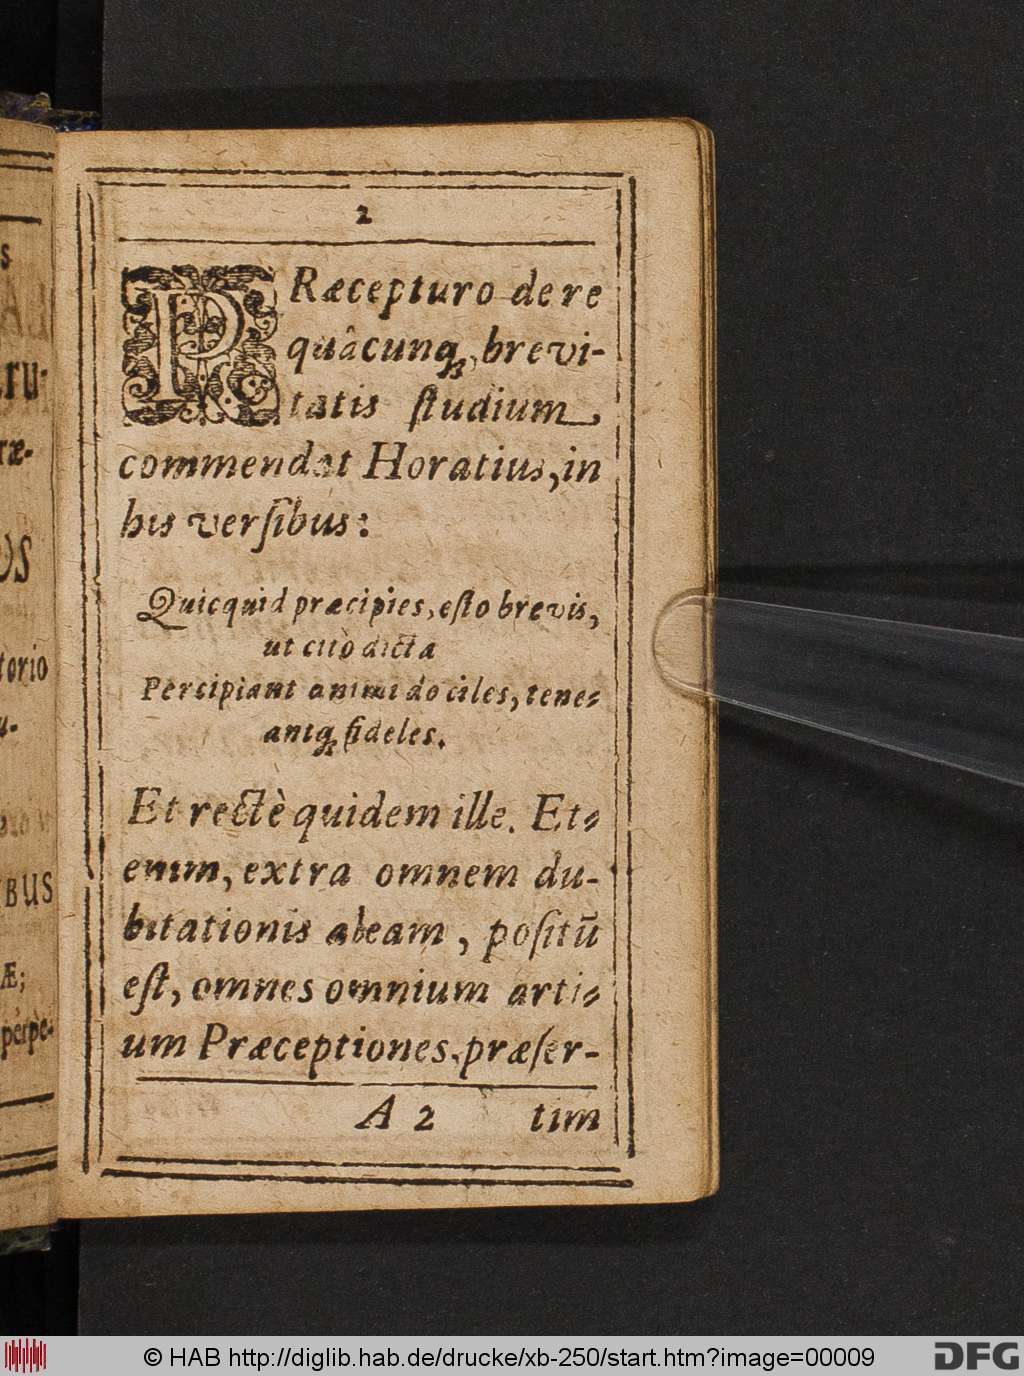 2
PRæcepturo de re
quâcunqꝫ, brevi-
tatis ſtudium
commendat Horatius, in
his verſibus:
Quicquid præcipies, eſto brevis,
ut citò dicta
Percipiant animi dociles, tene-
antqꝫ fideles.
Et rectè quidem ille. Et-
enim, extra omnem du-
bitationis aleam, poſitū
eſt, omnes omnium arti-
um Præceptiones, præſer-
A 2 tim
s
AL
ru-
ræ-
torio
u-
BUS
Æ;
perpè-
© HAB http://diglib.hab.de/drucke/xb-250/start.htm?image=00009
DFG